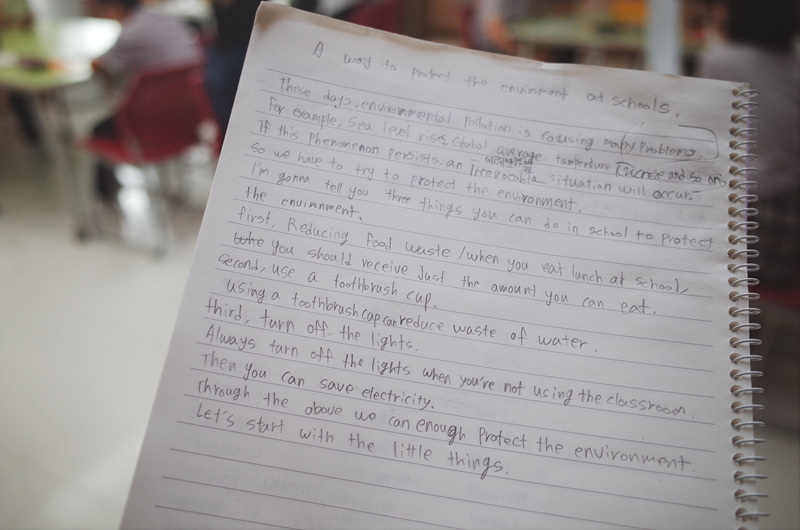 A way to protect the enviroment at schools,
These days, environmental pollution is causing many problems.
For example, sea level rises, Global average temterdure Increse and so on.
If this phenomenon persists, an irrevocable situation will occur.
So we have to try to protect the environment.
I'm gonna tell you three things you can do in school to protect
the environment.
first, Reducing food waste / when you eat lunch at school,
you should receive Just the amount you can eat.
second, use a toothbrush cup.
using a toothbrush cap can reduce waste of water.
third, turn off the lights.
Always turn off the lights when you're not using the classroom.
Then you can save electricity.
Through the above we can enough Protect the environment.
Let's start with the little things.